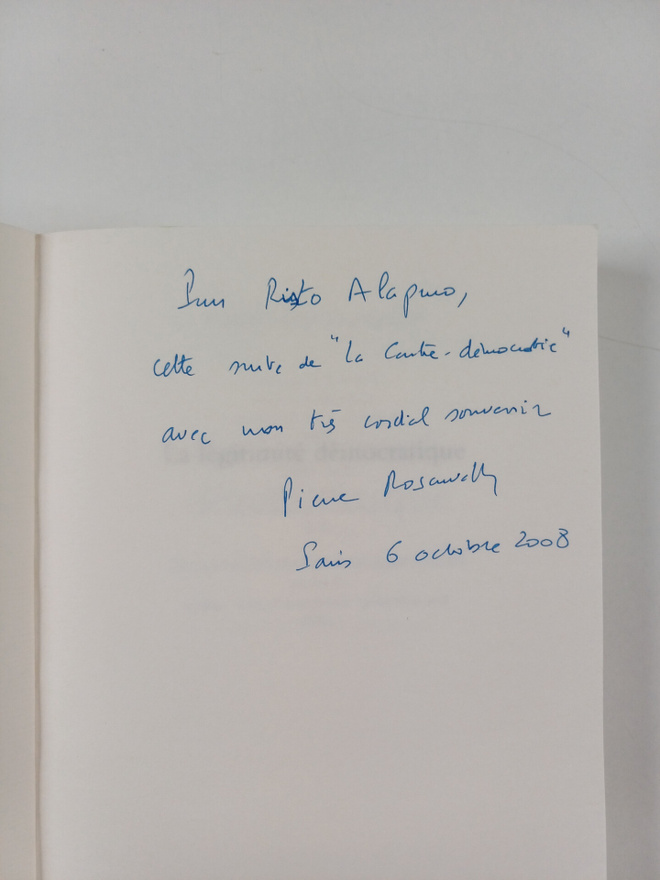 Pour Risto Alapuro,
cette suite de "La Contre-démocratie"
avec mon très cordial souvenir
Pierre Rosanvallon
Paris 6 octobre 2008
La légitimité démocratique